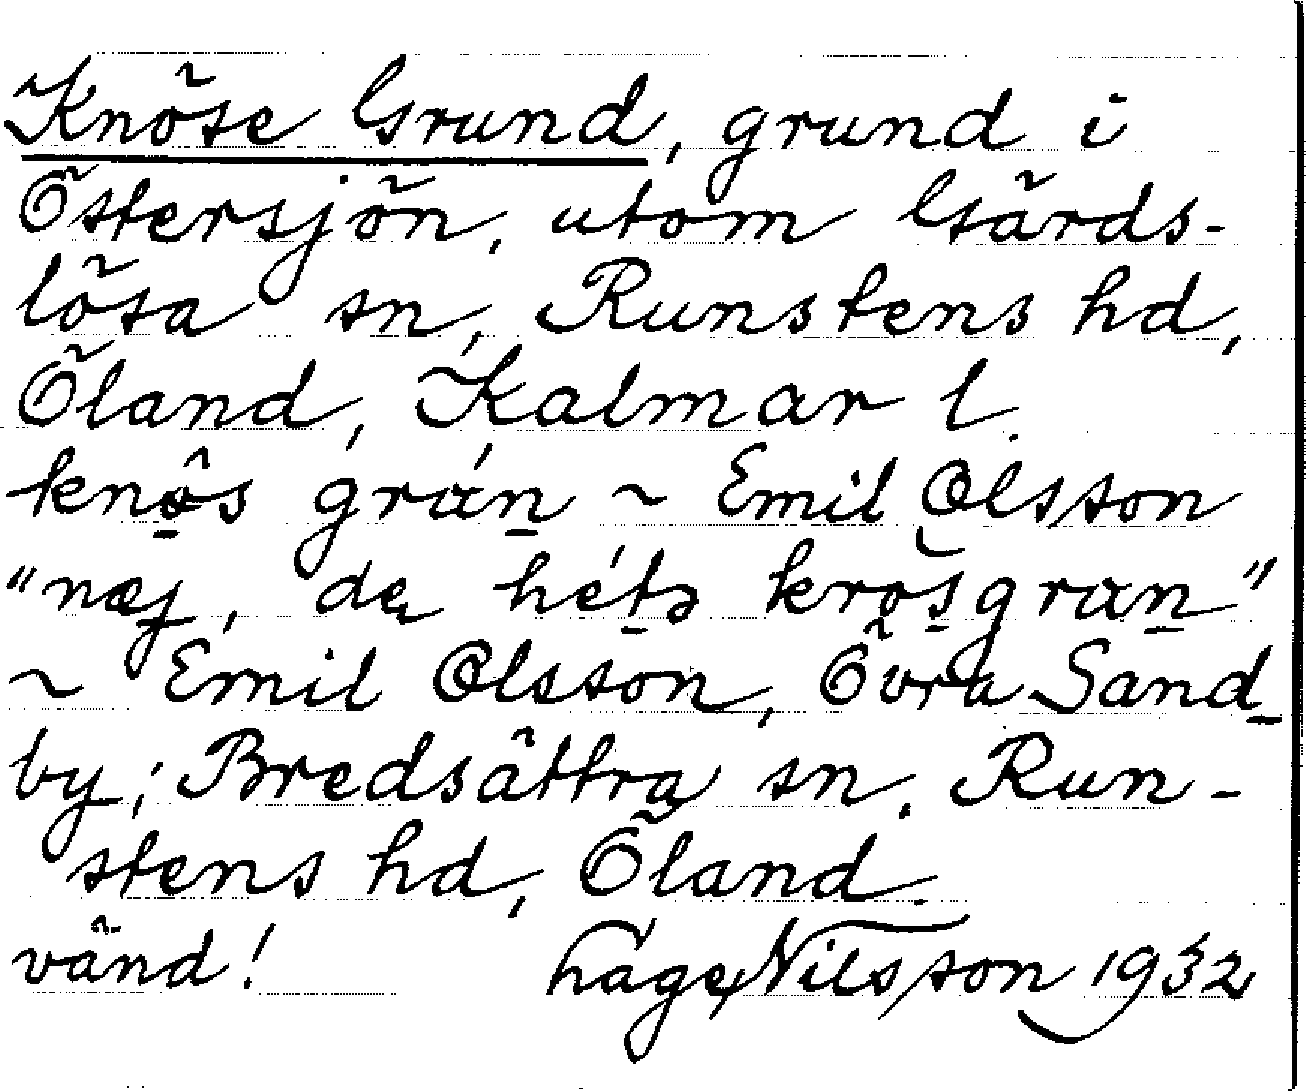 Knöse Grund, grund i
Östersjön, utom Gärds-
lösa sn, Runstens hd,
Öland, Kalmar l.
knös grán ~ Emil Olsson
"næj, de hétə krosgran"
~ Emil Olsson, Övra Sand-
by; Bredsättra sn. Run-
stens hd, Öland.
vänd! Håge Nilsson 1932